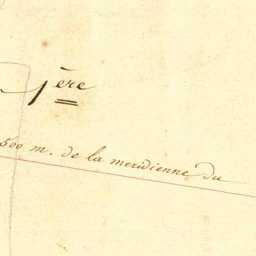 1ère
500 m. de la meridienne du